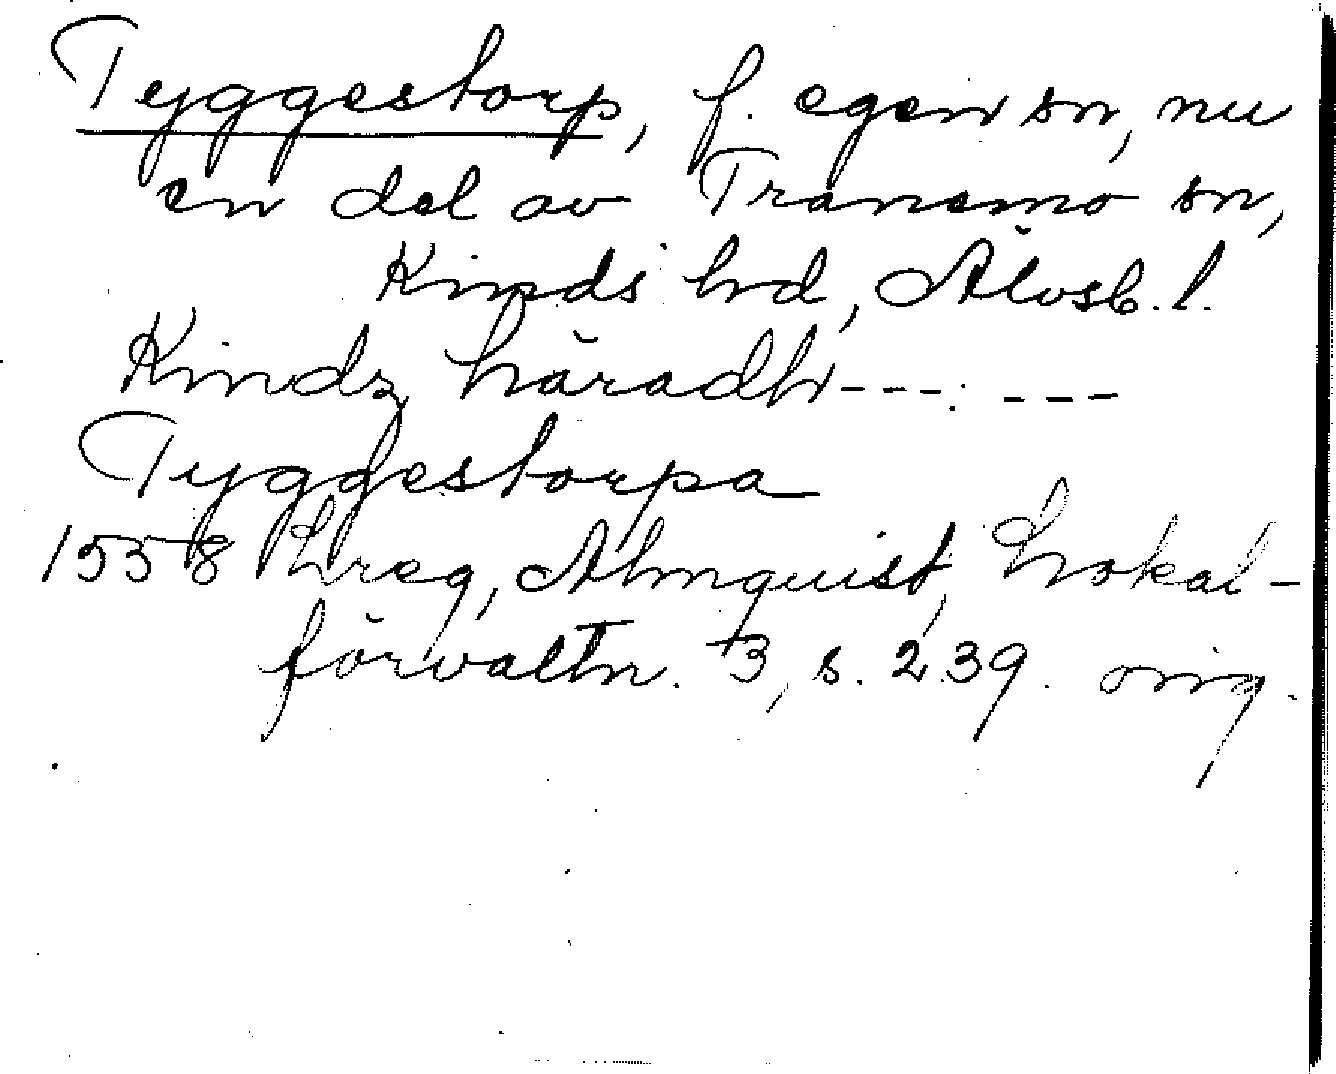 Tyggestorp, f. egen sn, nu
en del av Tranemo sn,
Kinds hd, Älvsb. l.
Kindz häradh---: ---
Tyggestorpa
1558 Lreg, Almquist, Lokal-
förvaltn. 3, s. 239. orig.